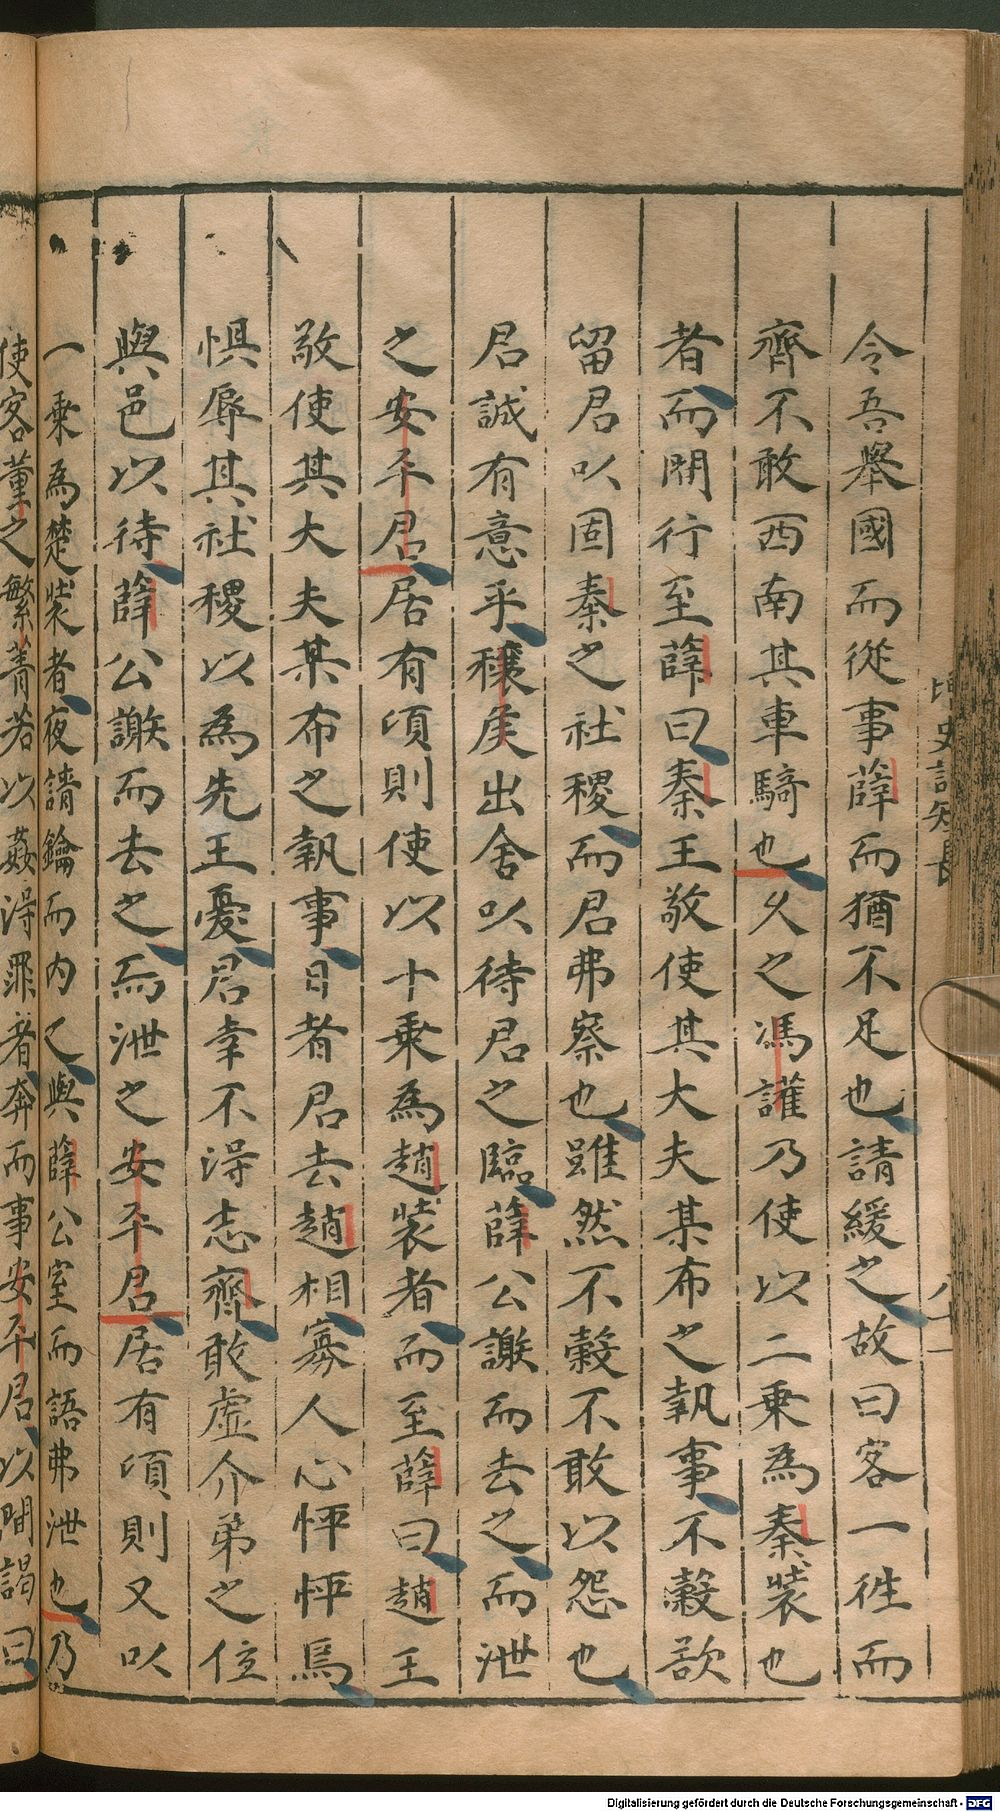 令吾舉國而從事薛而猶不足也請緩之故曰客一徃而
齊不敢西南其車騎也乆之馮讙乃使以二乗為秦裝也
者而閒行至薛曰秦王敬使其大夫某布之執事不穀欲
留君以固秦之社稷而君弗察也雖然不穀不敢以怨也
君誠有意乎穰矦出舍以待君之臨薛公謝而去之而泄
之安平君居有頃則使以十乗為趙裝者而至薛曰趙王
敬使其大夫某布之執事日者君去趙相寡人心怦怦焉
惧辱其社稷以為先王憂君幸不得志齊敢虚介弟之位
與邑以待薛公謝而去之而泄之安平君居有頃則又以
一乗為楚裝者夜請鑰而内之與薛公室而語弗泄也乃
使客董之繁菁若以姦得罪者奔而事安平君以間謁曰
史記短長
八十一
Digitalisierung gefördert durch die Deutsche Forschungsgemeinschaft - DFG